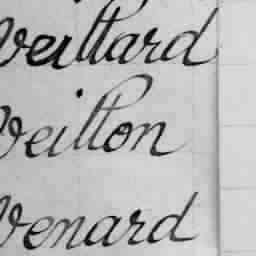 Veillard
Veillon
Venard